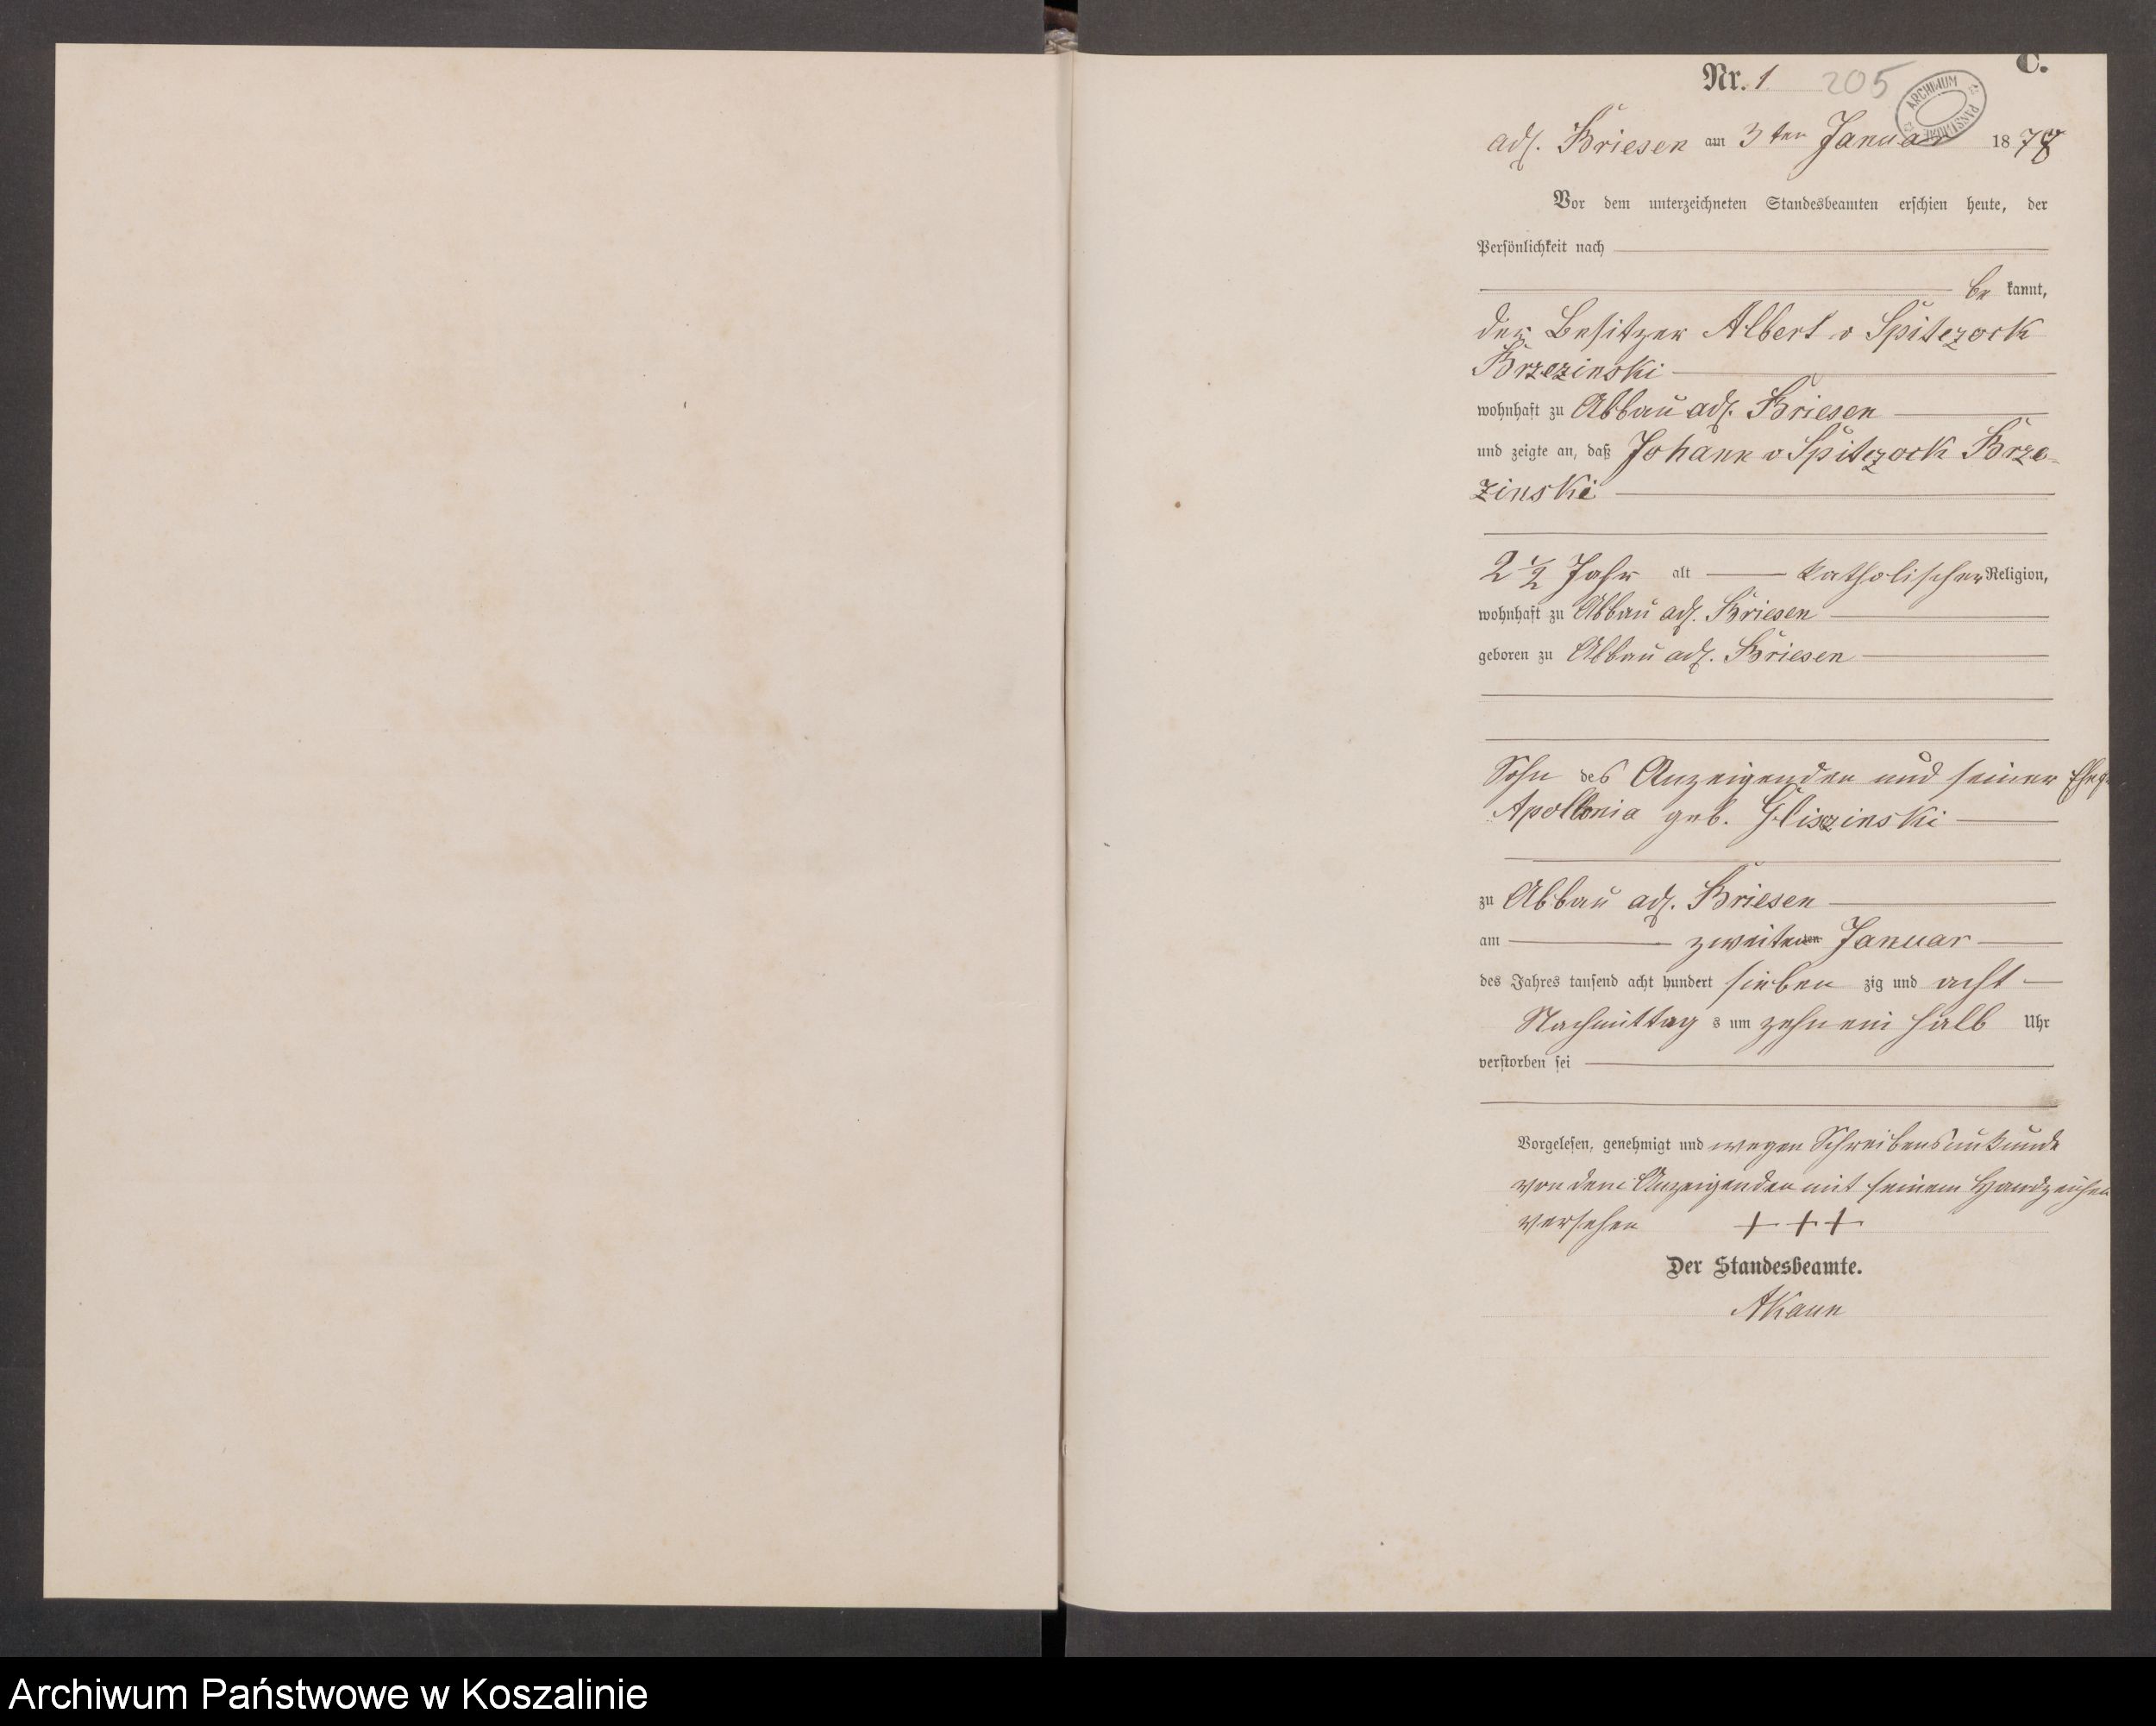 C.
Nr. 1 205
ARCHIWUM PAŃSTWOWE
adl. Briesen am 3ten Januar 1878
Vor dem unterzeichneten Standesbeamten erschien heute, der
Persönlichkeit nach
be kannt,
der Besitzer Albert v Spitczock
Brzezinski
wohnhaft zu Abbau adl. Briesen
und zeigte an, daß Johann v Spitczock Brze-
zinski
2 1/2 Jahr alt katholischer Religion,
wohnhaft zu Abbau adl. Briesen
geboren zu Abbau adl. Briesen
Sohn des Anzeigenden und seiner
Apollonia geb. Gliszinski
zu Abbau adl. Briesen
am zweiten Januar
des Jahres tausend acht hundert sieben zig und acht
Nachmittag s um zehn ein halb Uhr
verstorben sei
Vorgelesen, genehmigt und wegen Schreibensunkunde
von dem Anzeigenden mit seinem Handzeichen
versehen + + +
Der Standesbeamte.
AKaun
Archiwum Państwowe w Koszalinie